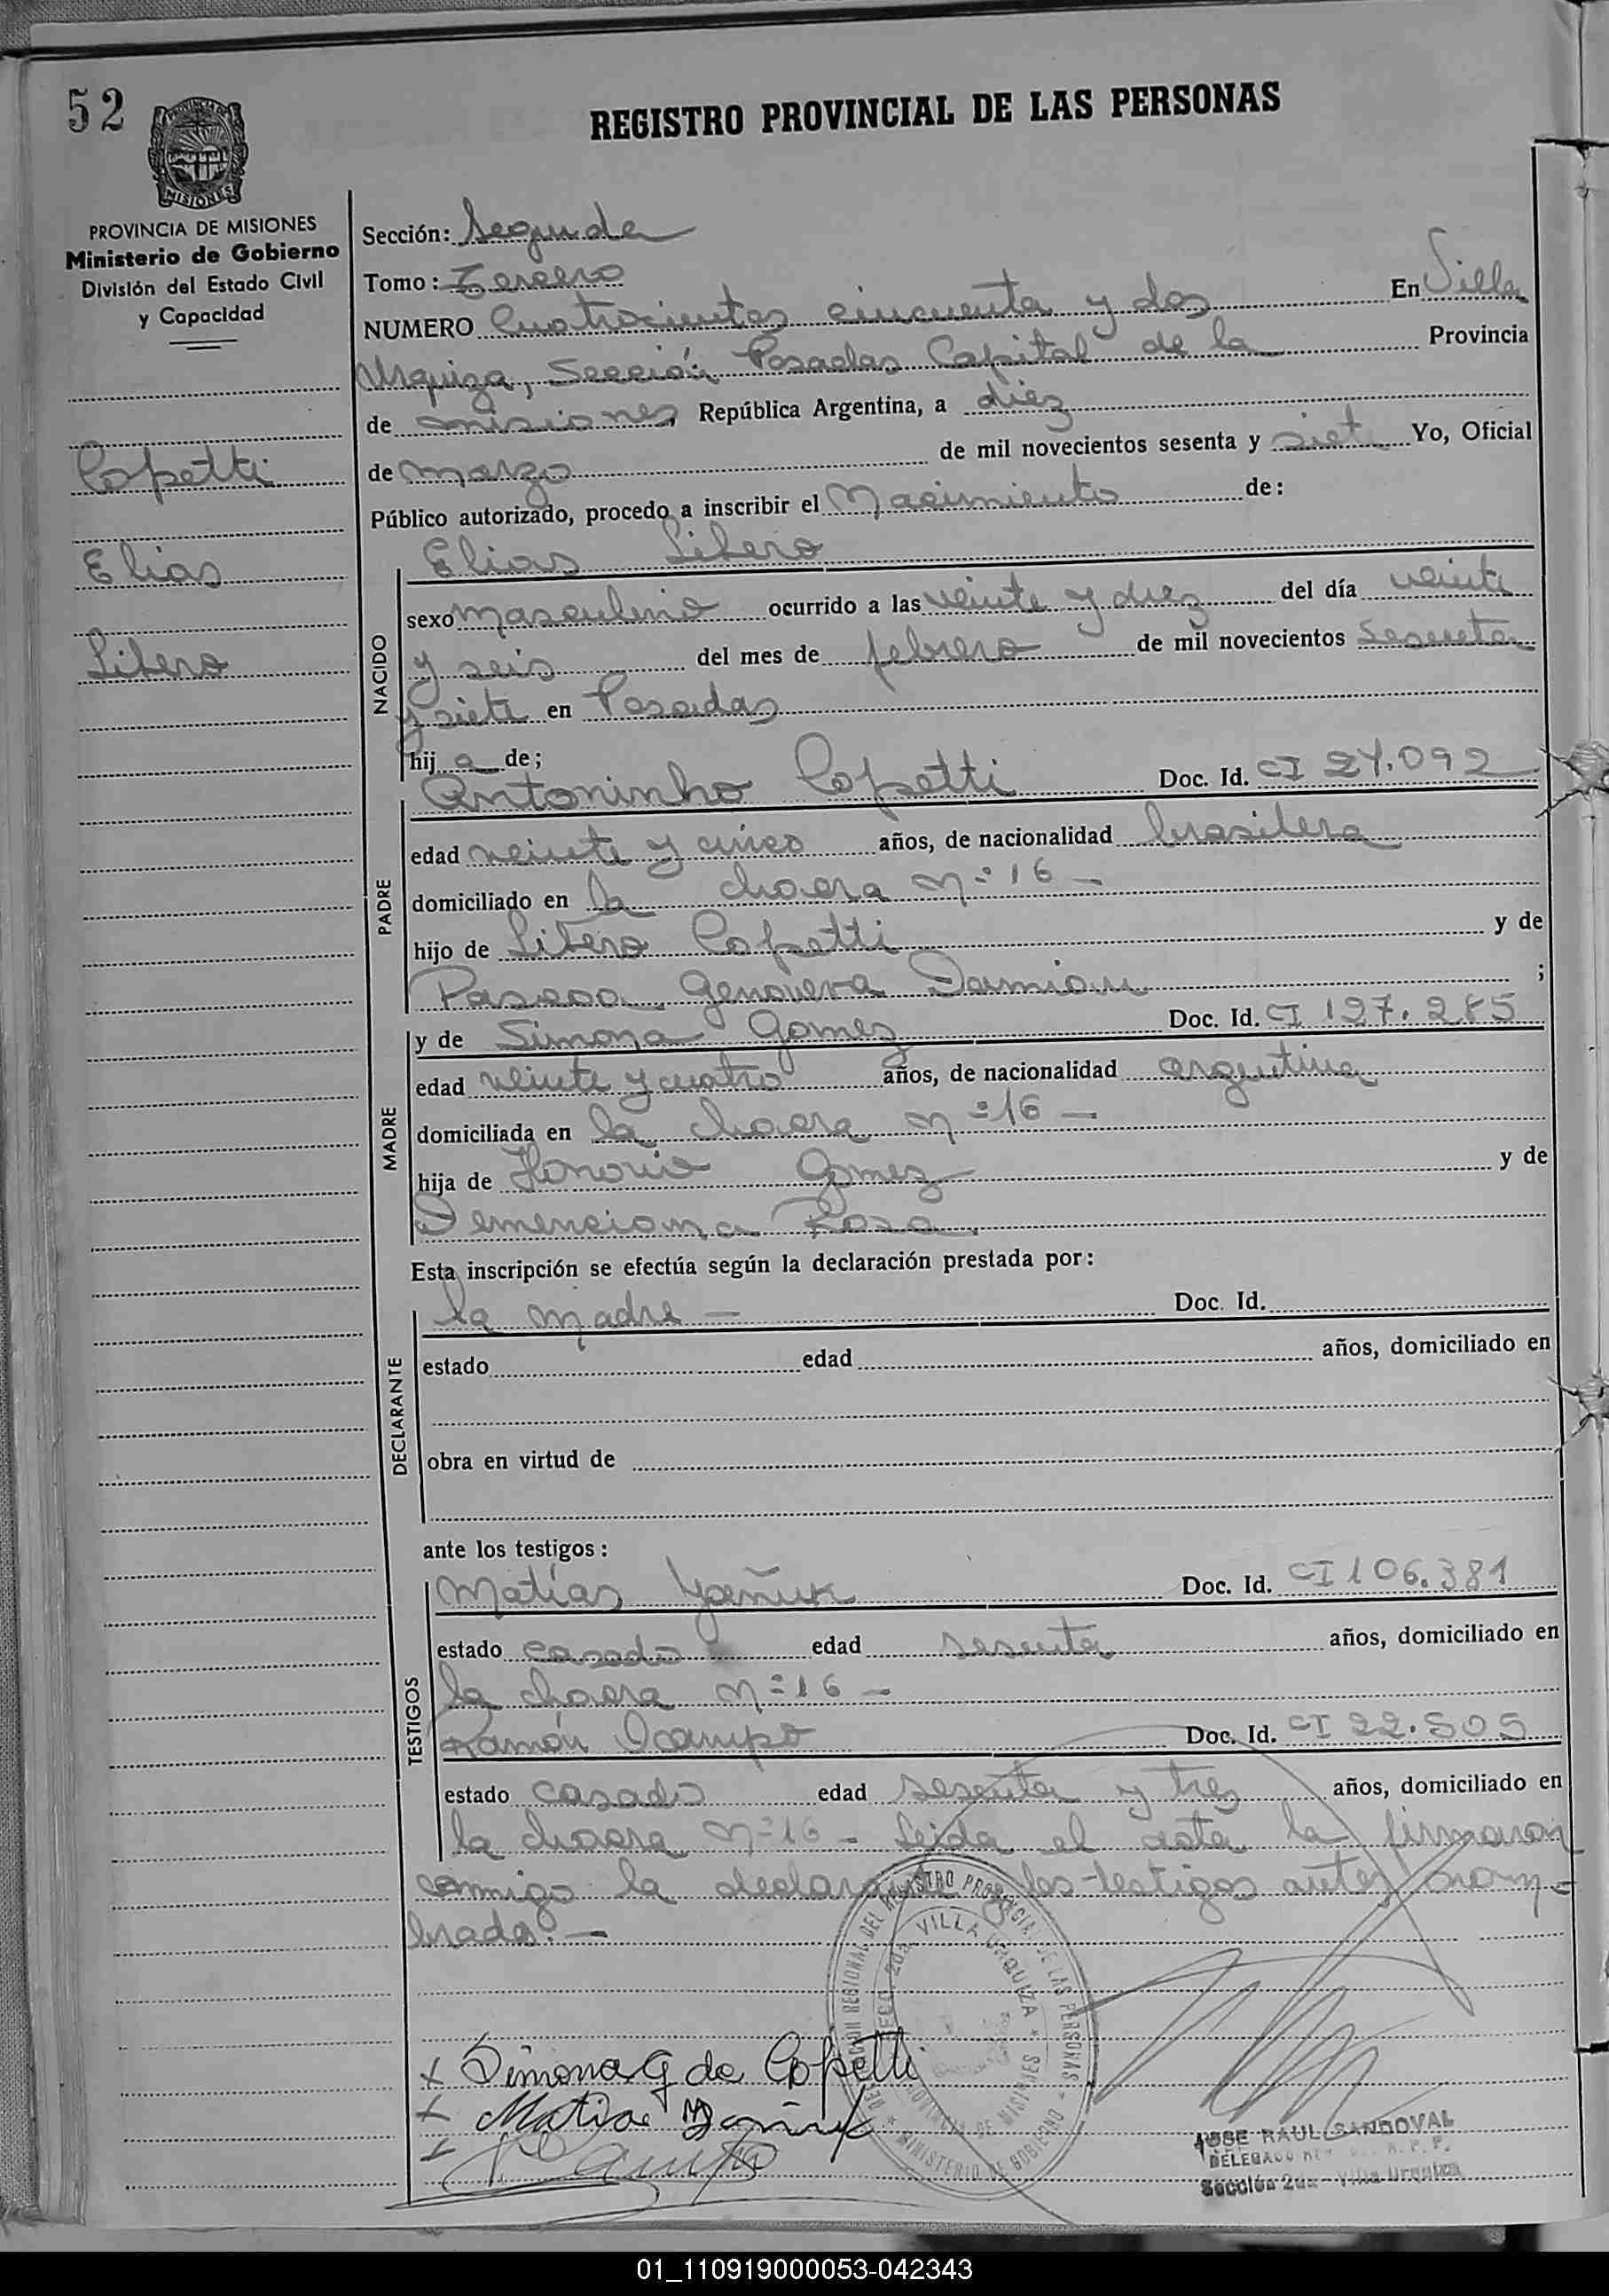 52
REGISTRO PROVINCIAL DE LAS PERSONAS
PROVINCIA DE MISIONES
Ministerio de Gobierno
División del Estado Civil
y Capacidad
Copetti
Elias
Litero
Sección: Segunda
Tomo: Tercero
NUMERO Cuatrocientos cincuenta y dos En Villa
Urquiza, Sección Posadas Capital de la Provincia
de misiones República Argentina, a diez
de marzo de mil novecientos sesenta y siete Yo, Oficial
Público autorizado, procedo a inscribir el Nacimiento de:
Elias Litero
NACIDO
sexo masculino ocurrido a las veinte y diez del día veinte
y seis del mes de febrero de mil novecientos sesenta
y siete en Posadas
hij o de;
PADRE
Antoninho Copetti Doc. Id. CI 24.092
edad veinte y cinco años, de nacionalidad brasilera
domiciliado en la chacra nº 16 -
hijo de Litero Copetti y de
Pascoa Genoveva Damian ;
MADRE
y de Simona Gomez Doc. Id. CI 127.285
edad veinte y cuatro años, de nacionalidad argentina
domiciliada en la chacra nº 16 -
hija de Honorio Gomez y de
Demenciona Rosa.
Esta inscripción se efectúa según la declaración prestada por:
DECLARANTE
la madre - Doc. Id.
estado edad años, domiciliado en
obra en virtud de
ante los testigos:
TESTIGOS
Matías Yañuk Doc. Id. CI 106.381
estado casado edad sesenta años, domiciliado en
la chacra nº 16 -
Ramón Ocampo Doc. Id. CI 22.505
estado casado edad sesenta y tres años, domiciliado en
la chacra nº 16 - Leida el acta la firmaron
conmigo la declarante y los testigos antes nom-
brados. -
DELEGACION REGIONAL DEL REGISTRO PROVINCIAL DE LAS PERSONAS * MINISTERIO DE GOBIERNO *
VILLA URQUIZA * PROVINCIA DE MISIONES
x Simona G de Copetti
x Matias Yañuk
x
JOSE RAUL SANDOVAL
DELEGADO R. P. P.
Sección 2da - Villa Urquiza
01_110919000053-042343